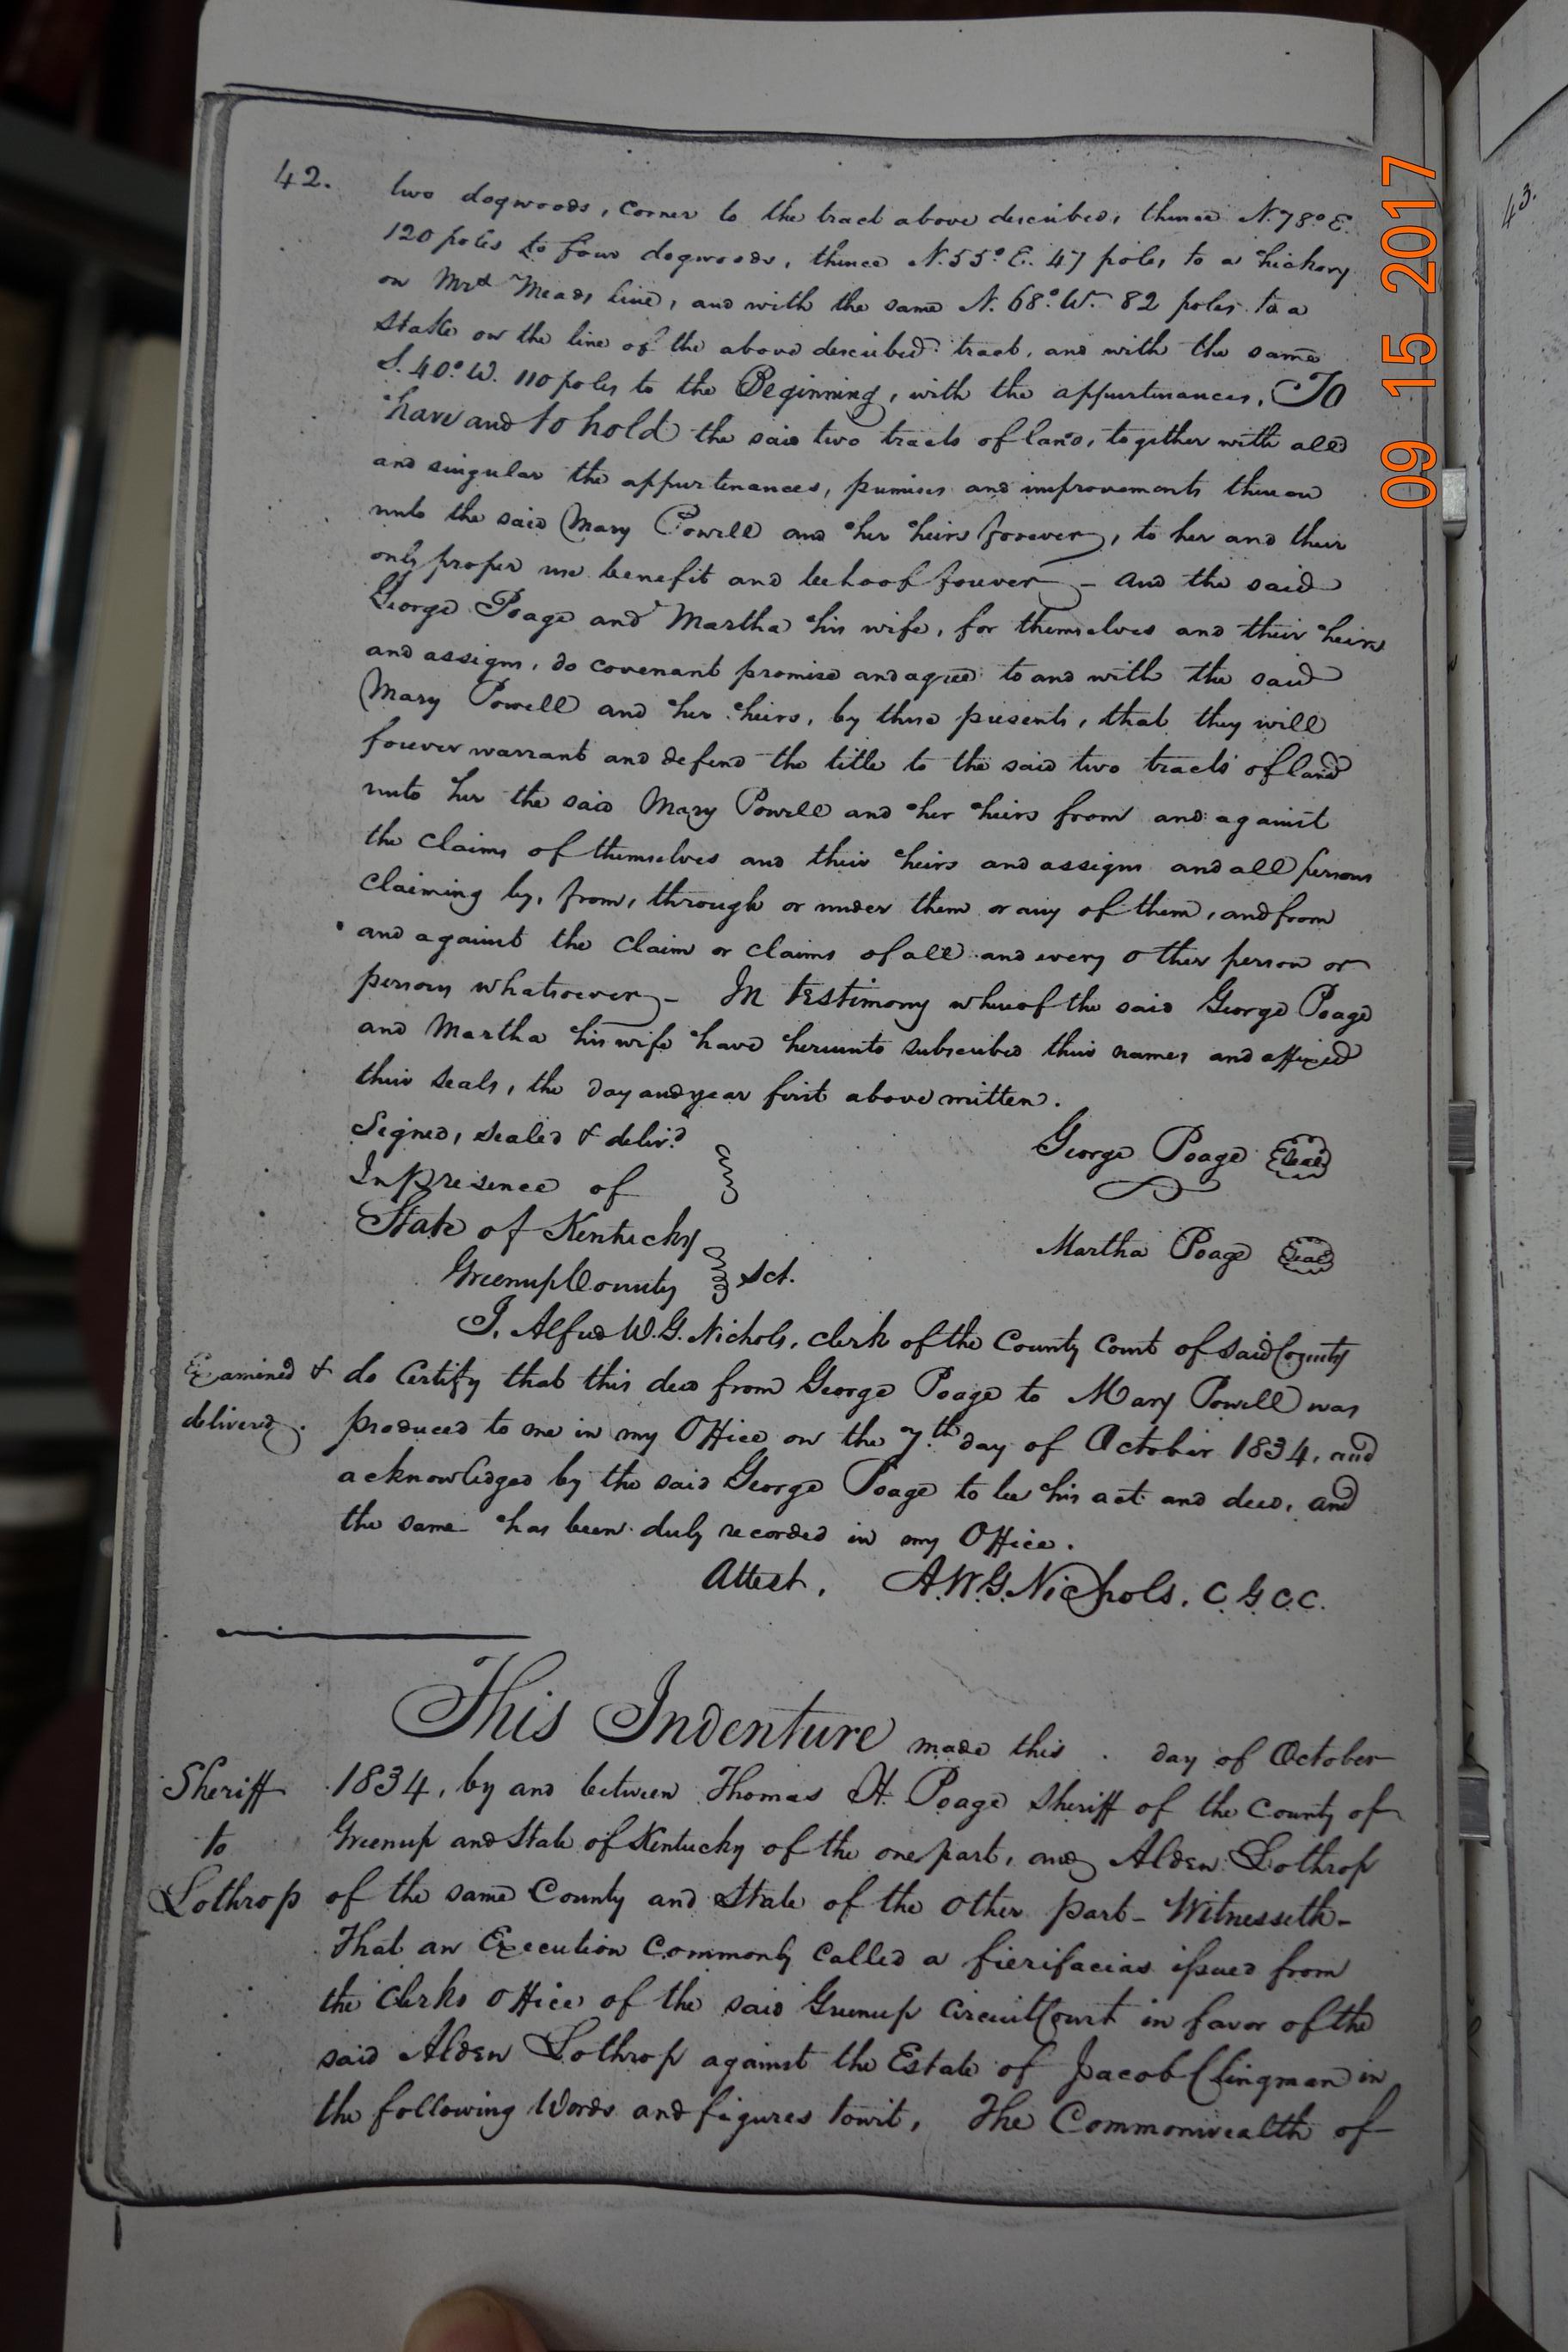 42.
two dogwoods, corner to the tract above described, thence N. 78° E.
120 poles to four dogwoods, thence N. 55° E. 47 poles to a hickory
on Mrs Meads line, and with the same N. 68° W. 82 poles to a
Stake on the line of the above described tract, and with the same
S. 40° W. 110 poles to the Beginning, with the appurtenances, To
have and to hold the said two tracts of land, together with all
and singular the appurtenances, premises and improvements thereon
unto the said Mary Powell and her heirs forever, to her and their
only proper use benefit and behoof forever - and the said
George Poage and Martha his wife, for themselves and their heirs
and assigns, do covenant promise and agree to and with the said
Mary Powell and her heirs, by these presents, that they will
forever warrant and defend the title to the said two tracts of land
unto her the said Mary Powell and her heirs from and against
the claims of themselves and their heirs and assigns and all persons
claiming by, from, through or under them or any of them, and from
and against the claim or claims of all and every other person or
persons whatsoever - In testimony whereof the said George Poage
and Martha his wife have hereunto subscribed their names and affixed
their seals, the day and year first above written.
Signed, sealed & deliv.d
In presence of
George Poage Seal
Martha Poage Seal
State of Kentucky
Greenup County Sct.
I, Alfred W. G. Nichols, clerk of the County Court of said County
Examined &
delivered.
do Certify that this deed from George Poage to Mary Powell was
produced to me in my Office on the 7.th day of October 1834, and
acknowledged by the said George Poage to be his act and deed, and
the same has been duly recorded in my Office.
Attest, A. W. G. Nichols, C. G. C. C.
This Indenture made this . day of October
Sheriff
to
Lothrop
1834, by and between Thomas H. Poage Sheriff of the County of
Greenup and State of Kentucky of the one part, and Alden Lothrop
of the same County and State of the other part - Witnesseth -
That an Execution commonly called a fierifacias issued from
the clerks office of the said Greenup Circuit Court in favor of the
said Alden Lothrop against the Estate of Jacob Clingman in
the following Words and figures towit, The Commonwealth of
43.
09 15 2017